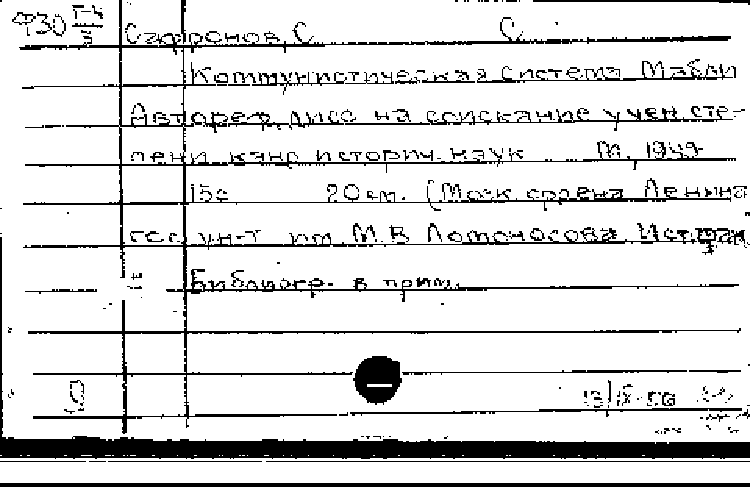 Ф30 Г-4/3
Сафронов, С. С.
Коммунистическая система Мабли
Автореф. дисс на соискание учен. сте-
пени канд историч. наук М., 1949
15с 20 см. (Моск ордена Ленина
гос ун-т им. М. В Ломоносова. Ист.
Библиогр. в прим.
13/IX-50